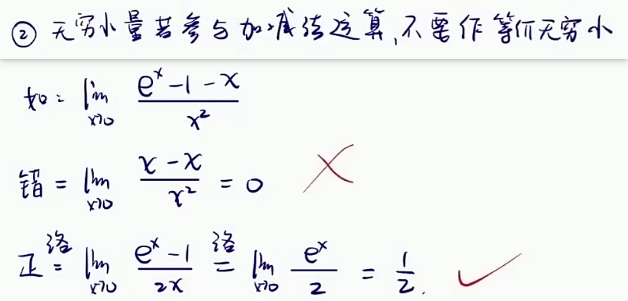 ② 无穷小量若参与加减法运算,不要作等价无穷小
如: lim x→0 (e^x-1-x)/x²
错 = lim x→0 (x-x)/x² = 0 ×
正 洛= lim x→0 (e^x-1)/2x 洛= lim x→0 e^x/2 = 1/2. ✓